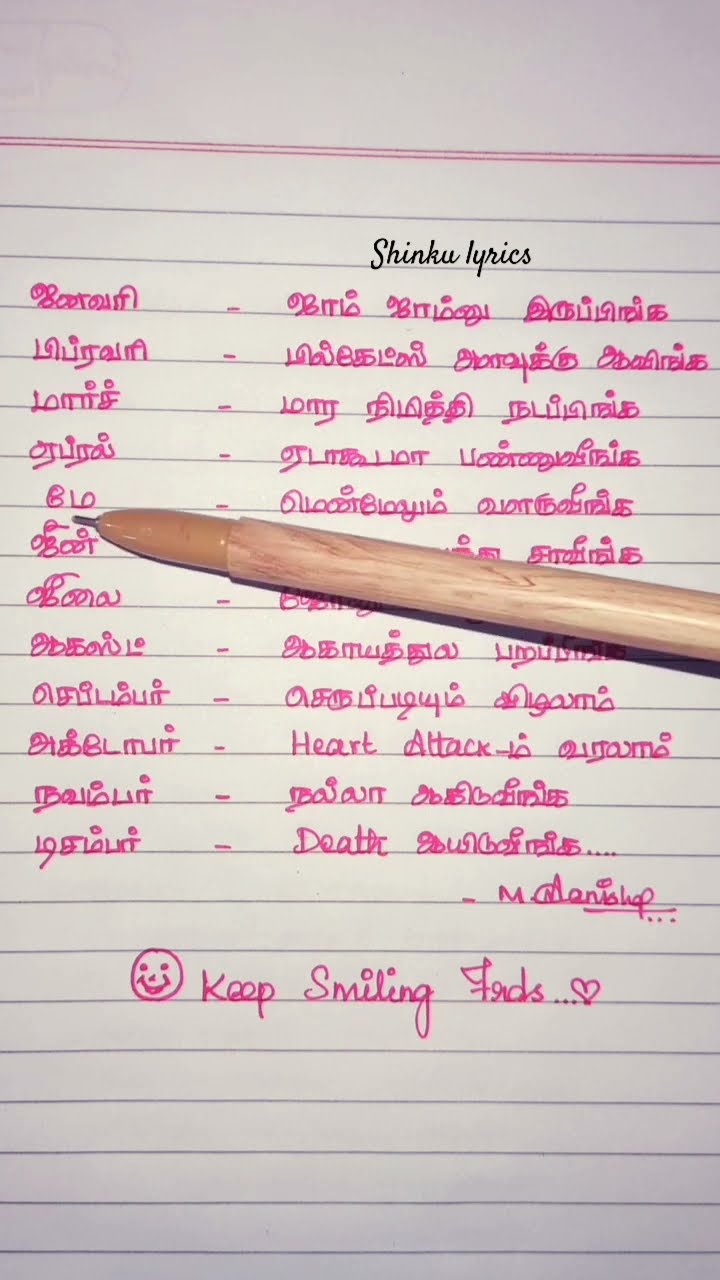 Shinku lyrics
ஜனவரி - ஜாம் ஜாம்னு இருப்பிங்க
பிப்ரவரி - பில்கேட்ஸ் அளவுக்கு ஆவிங்க
மார்ச் - மார நிமித்தி நடப்பிங்க
ஏப்ரல் - ஏடாகூடமா பண்ணுவீங்க
மே - மென்மேலும் வளருவீங்க
ஜீன் சாவீங்க
ஜீலை -
ஆகஸ்ட் - ஆகாயத்துல பறப்பிங்க
செப்டம்பர் - செருப்படியும் விழலாம்
அக்டோபர் - Heart Attack-ம் வரலாம்
நவம்பர் - நல்லா ஆகிடுவீங்க
டிசம்பர் - Death ஆயிடுவீங்க....
- M.
Keep Smiling Frds...♡